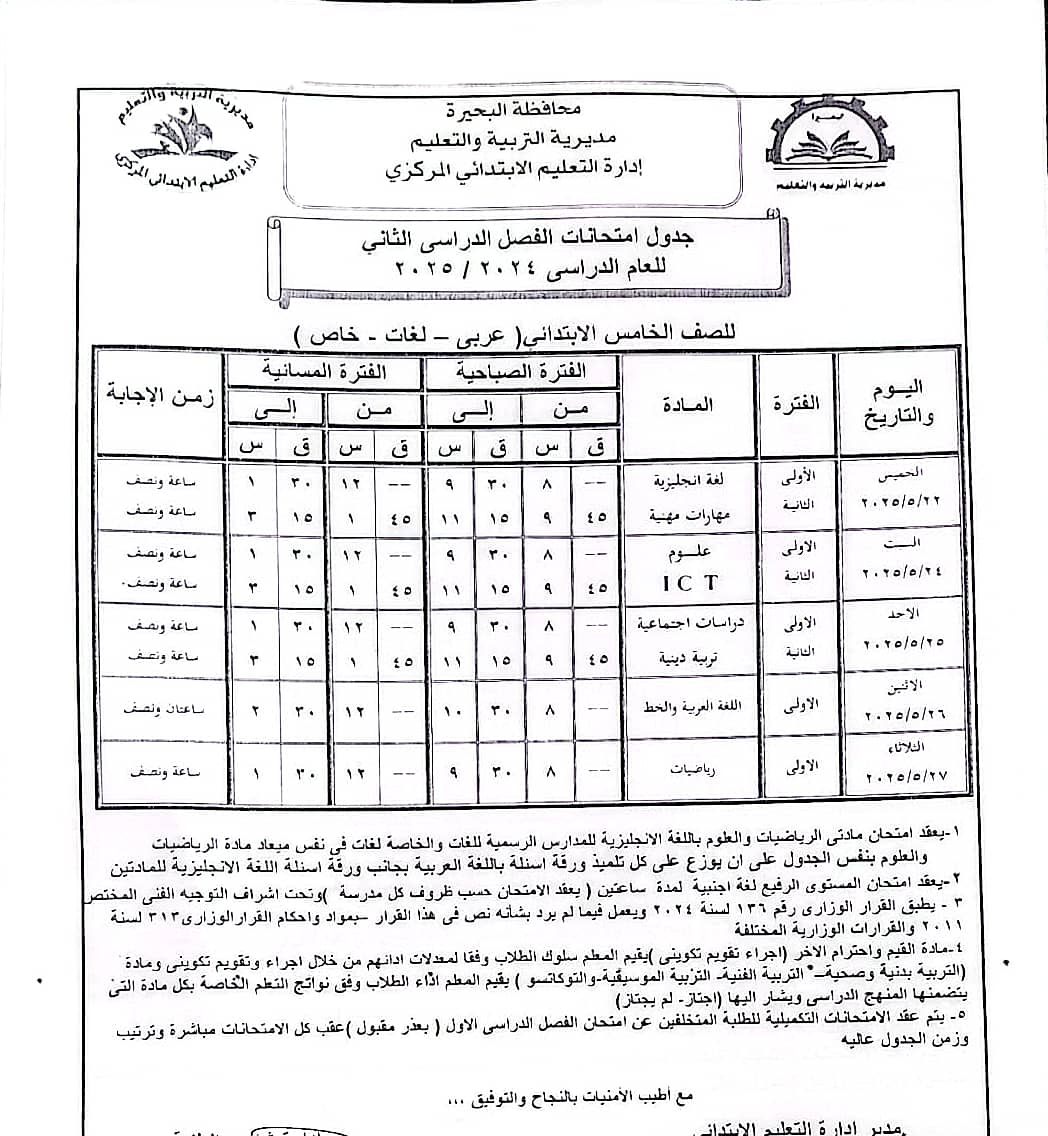 محافظة البحيرة
مديرية التربية والتعليم
إدارة التعليم الابتدائي المركزي
مديرية التربية والتعليم
إدارة التعليم الابتدائي المركزي
مديرية التربية والتعليم
جدول امتحانات الفصل الدراسى الثاني
للعام الدراسى ٢٠٢٤ / ٢٠٢٥
للصف الخامس الابتدائي( عربى – لغات - خاص )
اليوم والتاريخ الفترة المادة الفترة الصباحية الفترة المسائية زمن الإجابة
من إلى من إلى
ق س ق س ق س ق س
الخميس ٢٠٢٥/٥/٢٢ الأولى لغة انجليزية -- ٨ ٣٠ ٩ -- ١٢ ٣٠ ١ ساعة ونصف
الثانية مهارات مهنية ٤٥ ٩ ١٥ ١١ ٤٥ ١ ١٥ ٣ ساعة ونصف
السبت ٢٠٢٥/٥/٢٤ الاولى علوم -- ٨ ٣٠ ٩ -- ١٢ ٣٠ ١ ساعة ونصف
الثانية I C T ٤٥ ٩ ١٥ ١١ ٤٥ ١ ١٥ ٣ ساعة ونصف
الاحد ٢٠٢٥/٥/٢٥ الاولى دراسات اجتماعية -- ٨ ٣٠ ٩ -- ١٢ ٣٠ ١ ساعة ونصف
الثانية تربية دينية ٤٥ ٩ ١٥ ١١ ٤٥ ١ ١٥ ٣ ساعة ونصف
الاثنين ٢٠٢٥/٥/٢٦ الاولى اللغة العربية والخط -- ٨ ٣٠ ١٠ -- ١٢ ٣٠ ٢ ساعتان ونصف
الثلاثاء ٢٠٢٥/٥/٢٧ الاولى رياضيات -- ٨ ٣٠ ٩ -- ١٢ ٣٠ ١ ساعة ونصف
١-يعقد امتحان مادتى الرياضيات والعلوم باللغة الانجليزية للمدارس الرسمية للغات والخاصة لغات فى نفس ميعاد مادة الرياضيات
والعلوم بنفس الجدول على ان يوزع على كل تلميذ ورقة اسئلة باللغة العربية بجانب ورقة اسئلة اللغة الانجليزية للمادتين
٢-يعقد امتحان المستوى الرفيع لغة اجنبية لمدة ساعتين ( يعقد الامتحان حسب ظروف كل مدرسة )وتحت اشراف التوجيه الفنى المختص
٣ - يطبق القرار الوزارى رقم ١٣٦ لسنة ٢٠٢٤ ويعمل فيما لم يرد بشأنه نص فى هذا القرار –بمواد واحكام القرار الوزارى٣١٣ لسنة
٢٠١١ والقرارات الوزارية المختلفة
٤-مادة القيم واحترام الاخر (اجراء تقويم تكوينى )يقيم المعلم سلوك الطلاب وفقا لمعدلات ادائهم من خلال اجراء وتقويم تكوينى ومادة
(التربية بدنية وصحية– التربية الفنية- التربية الموسيقية-والتوكاتسو ) يقيم المعلم اداء الطلاب وفق نواتج التعلم الخاصة بكل مادة التى
يتضمنها المنهج الدراسى ويشار اليها (اجتاز- لم يجتاز)
٥- يتم عقد الامتحانات التكميلية للطلبة المتخلفين عن امتحان الفصل الدراسى الاول ( بعذر مقبول )عقب كل الامتحانات مباشرة وترتيب
وزمن الجدول عاليه
مع أطيب الأمنيات بالنجاح والتوفيق ...
مدير إدارة التعليم الابتدائى